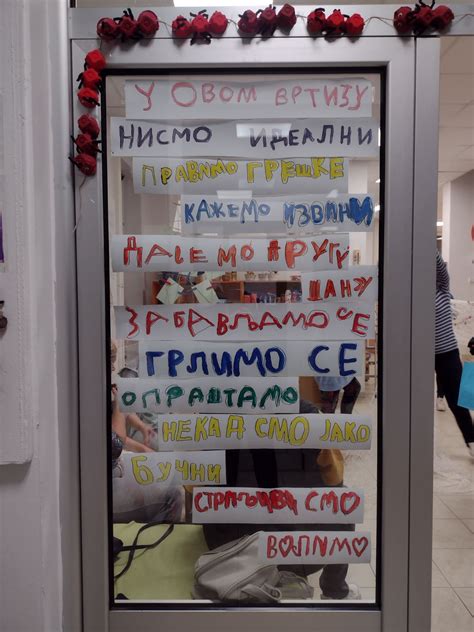 У ОВОМ ВРТИЗУ
НИСМО ИДЕАЛНИ
ПРАВИМО ГРЕШКЕ
КАЖЕМО ИЗВИНИ
ДАЈЕМО ДРУГУ
ШАНЗУ
ЗАБАВЉАМО СЕ
ГРЛИМО СЕ
ОПРАШТАМО
НЕКАД СМО ЈАКО
БУЧНИ
СТРПЉИВИ СМО
ВОЛИМО